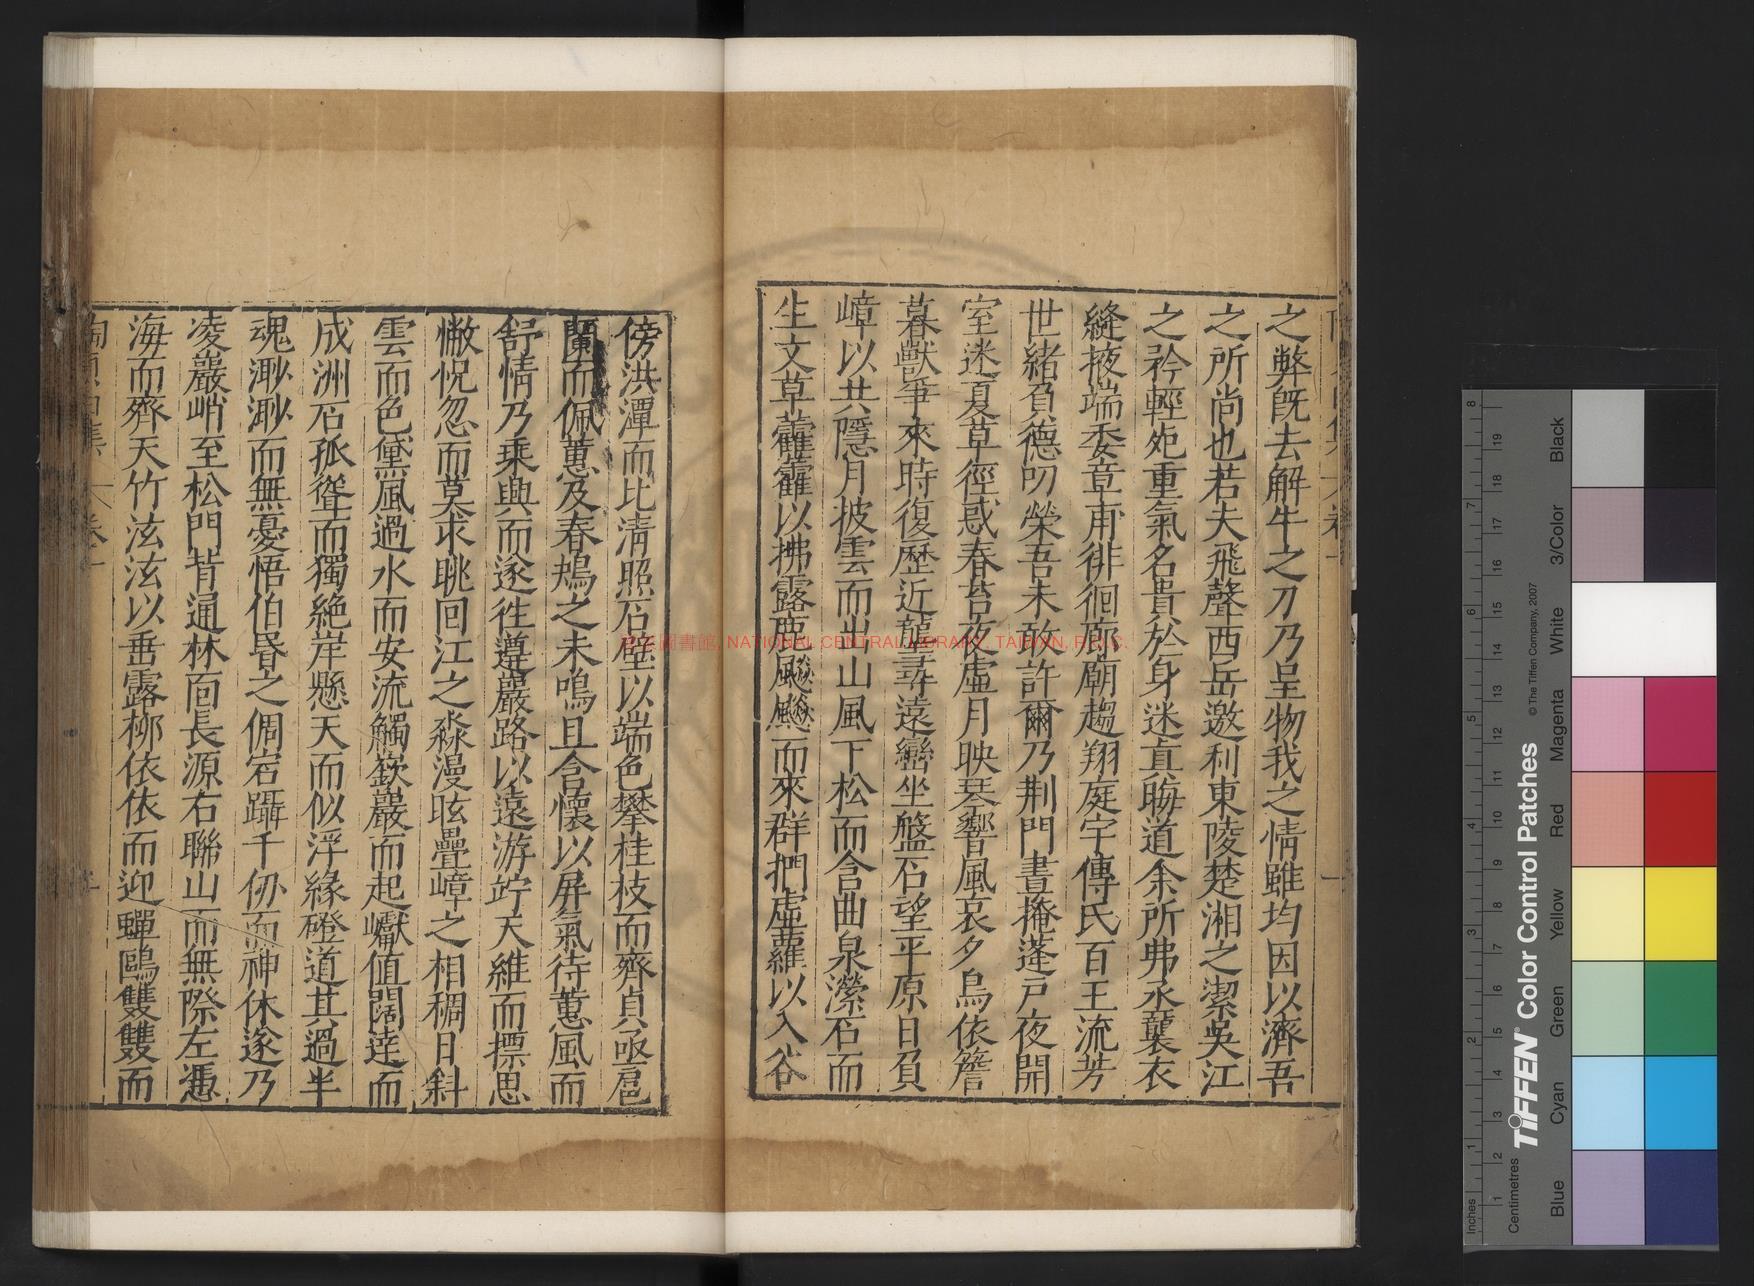 之弊旣去解牛之刀乃呈物我之情雖均因以濟吾
之所尚也若夫飛聲西岳邀利東陵楚湘之潔吳江
之矜輕死重氣名貴於身迷真晦道余所弗丞襲衣
縫掖端委章甫徘徊廊廟趨翔庭宇傳氏百王流芳
世緒負德叨榮吾未敢許爾乃荆門晝掩蓬戸夜開
室迷夏草徑惑春苔夜虛月映琴響風哀夕鳥依簷
暮獸爭來時復歷近壟尋遠巒坐盤石望平原日負
嶂以共隱月披雲而出山風下松而含曲泉瀠石而
生文草藿藿以拂露鹿颷颷而來群捫虛蘿以入谷
傍洪潭而比淸照石壁以端色攀桂枝而齊貞亟扈
蘭而佩蕙及春鴂之未鳴且含懷以屏氣待蕙風而
舒情乃乘輿而遂徃遵巖路以遠游竚天維而摽思
懒怳忽而莫求眺回江之淼漫眩疊嶂之相稠日斜
雲而色黛風過水而安流觸嶔巖而起巘值闊達而
成洲石孤聳而獨絶岸懸天而似浮緣磴道其過半
魂渺渺而無憂悟伯昬之倜宕躡千仞而神休遂乃
凌巖峭至松門背通林面長源右聯山而無際左憑
海而齊天竹泫泫以垂露柳依依而迎蟬鷗雙雙而
卷一
國家圖書館, NATIONAL CENTRAL LIBRARY, TAIWAN, R.O.C.
Inches
1 2 3 4 5 6 7 8
Centimetres
1 2 3 4 5 6 7 8 9 10 11 12 13 14 15 16 17 18 19
TIFFEN® Color Control Patches
© The Tiffen Company, 2007
Blue
Cyan
Green
Yellow
Red
Magenta
White
3/Color
Black